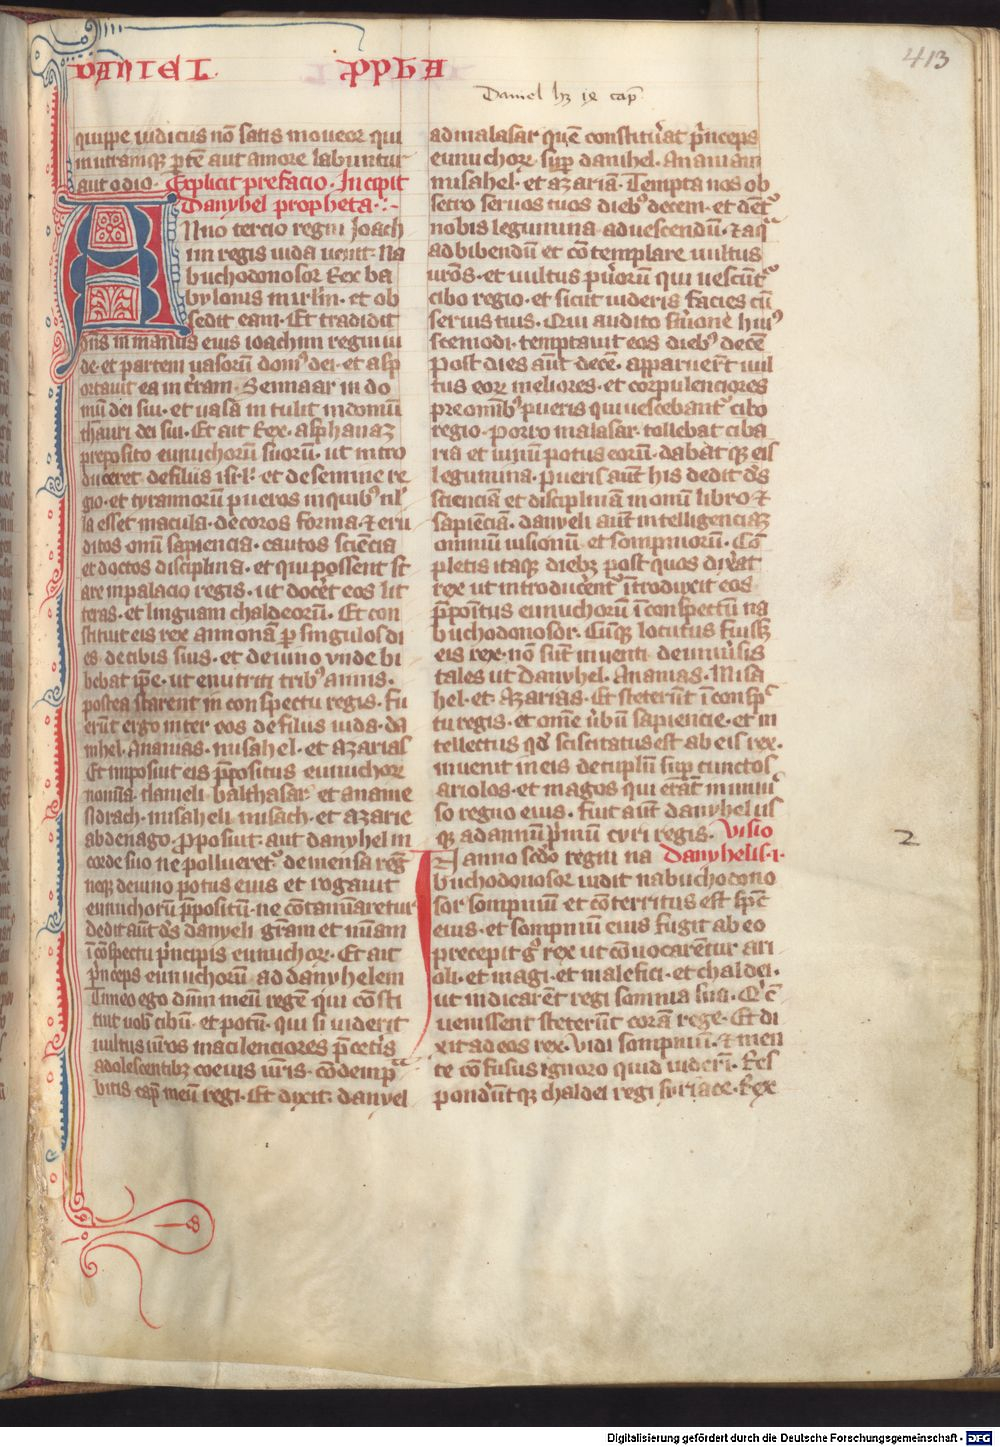 DANIEL PPHA
413
Daniel hȝ ix cap̄
quippe iudicus nō satis moueor qui
in utramqȝ ꝑtē aut amore labuntur
aut odio. Explicit prefacio. Incipit
Danyhel propheta.
Anno tercio regni Joach
im regis iuda uenit Na
buchodonosor Rex ba
bylonis in irl̄m. et ob
sedit eam. Et tradidit
dn̄s in manus eius ioachim regin iu
de. et partem uasorū domꝰ dei. et asp
ortauit ea in t̄ram. Sennaar in do
mū dei sui. et uasa in tulit in domū
thauri dei sui. Et ait Rex. asphanaz
preposito eunuchorū suorū. ut intro
duceret. de filiis isr̄l. et de semine re
gio. et tyrannorum pueros in quibꝰ nl̄
la esset macula. decoros forma. ⁊ eru
ditos omī sapiencia. cautos sciēcia
et doctos disciplina. et qui possent st
are in palacio regis. ut docēt eos lit
teras. et linguam chaldeorū. Et con
stituit eis rex annonā ꝑ singulos di
es. de cibis suis. et de uino vnde bi
bebat ip̄e. ut enutriti tribꝰ annis.
postea starent in conspectu regis. Fu
erūt ergo inter eos de filiis iuda. da
nihel. Ananias. misahel. et azarias
Et imposuit eis p̄positus eunuchorꝝ
nomīa. danieli balthasar. et ananie
sidrach. misaheli misach. et azarie
abdenago. proposuit. aut danyhel in
corde suo ne pollueretꝰ de mensa reḡ
neqȝ de uino potus eius et rogauit
eunuchorū p̄positū. ne cōtamīaretur
dedit aūt dꝰs danyeli gram et mīam
ī cōspectu pꝛincipis eunuchorꝝ. Et ait
p̄nceps eunuchorū ad danyhelem
Timeo ego dn̄m meū regē qui cōsti
tuit uob̄ cibū. et potū. qui si uiderit
uultus ur̄os macilenciores p̄ cetis
adolescentibȝ coeuis ur̄is. cōdempꝰ
bitis cap̄ meū regi. Et dixit. danyel
ad malasar quē constitūat p̄nceps
eunuchorꝝ suꝑ danihel. Ananiam
misahel. et azariā. Tempta nos ob
secro seruos tuos diebꝰ decem. et dētꝰ
nobis legumina ad uescendū. ⁊ aqᵃ
ad bibendū et cōtemplare uultus
ur̄os. et uultus puorū qui uescūtꝰ
cibo regio. et sicut uideris facies cū
seruis tuis. Qui audito smōne huiꝰ
scemodi. temptauit eos diebꝰ decē
Post dies aūt decē. apparuerūt uul
tus eorꝝ meliores. et corpulenciores
pre omībꝰ pueris qui uescebantꝰ cibo
regio. porro malasar. tollebat ciba
ria et uinū potus eorū. dabat qȝ eis
legumina. pueris aūt his dedit dꝰs
scienciā et disciplinā in omū libro ⁊
sapiēciā. danyeli aūt intelligenciaȝ
omniū uisionū. et sompniorū. Cō
pletis itaqȝ diebȝ post quos dixāt
rex ut introducētꝰ ītroduxit eos
p̄poītus eunuchorū ī conspectū na
buchodonosor. Cūqȝ locutus fuissȝ
eis rex. nō sūt inuenti de uniūsis
tales ut Danyhel. Ananias. Misa
hel. et Azarias. Et steterūt ī consp̄c
tu regis. et omē ūbū sapiencie. et in
tellectus qd̄ sciscitatus est ab eis rex.
inuenit in eis decuplū suꝑ cunctos
ariolos. et magos qui erāt in uniū
so regno eius. Fuit aūt danyhel us
qȝ ad annū p̄mū cyri regis. Visio
IN anno scdo regni na Danyhelis. i.
buchodonosor uidit nabuchodono
sor sompniū et cōterritus est sp̄c
eius. et sompniū eius fugit ab eo
precepit gͦ rex ut cōuocarētur ari
oli. et magi. et malefici. et chaldei.
ut indicarēt regi somnia sua. Qͥ cū
uenissent steterūt corā rege. Et di
xit ad eos rex. Vidi sompniū. ⁊ men
te cōfusus ignoro quid uiderī. Res
pondūtqȝ chaldei regi syriace. Rex
2
Digitalisierung gefördert durch die Deutsche Forschungsgemeinschaft - DFG